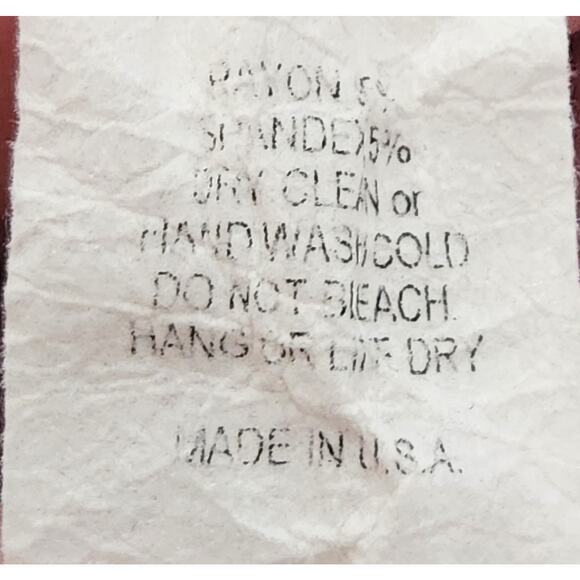 RAYON
SPANDEX 5%
DRY CLEAN or
HAND WASH COLD
DO NOT BLEACH.
HANG OR DRY
MADE IN U.S.A.